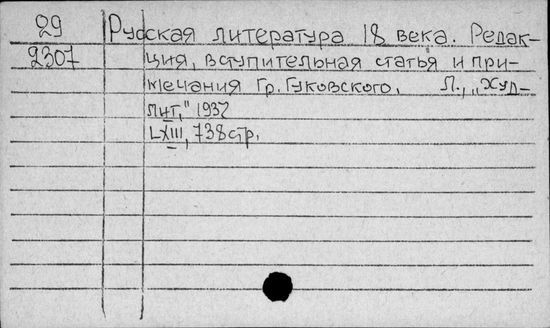 29 Русская литература 18 века. Редак-
2307 ция, вступительная статья и при-
мечания Гр. Гуковского. Л., „Худ-
лит," 1937
LXIII, 738 стр.